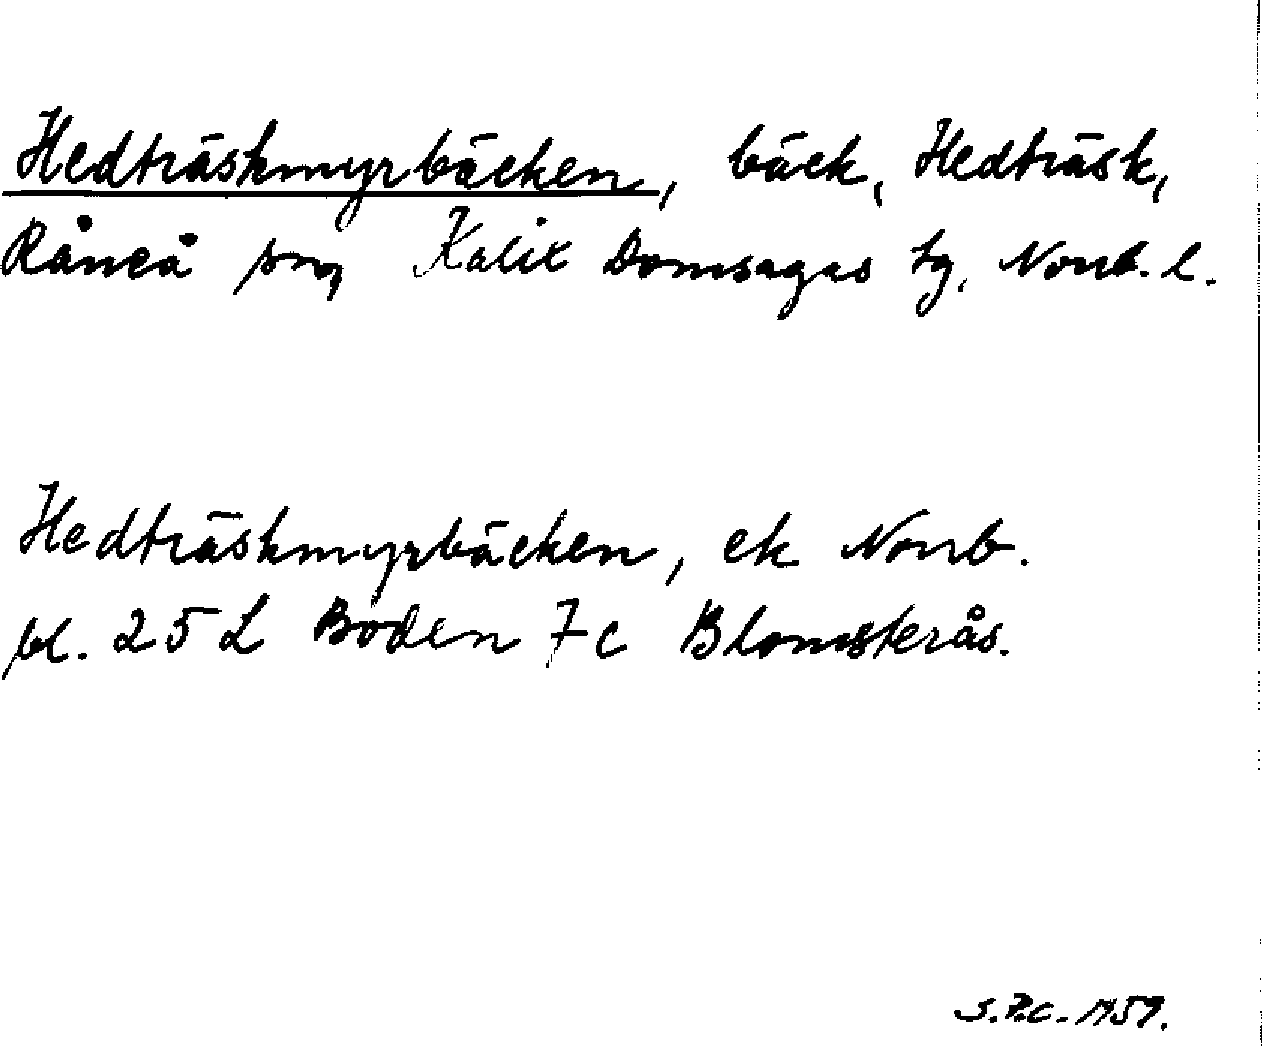 Hedträskmyrbäcken, bäck, Hedträsk,
Råneå sn, Kalix Domsagas tg, Norrb. l.
Hedträskmyrbäcken, ek Norrb.
bl. 25 L Boden 7c Blomsterås.
S.P.C. 1959.